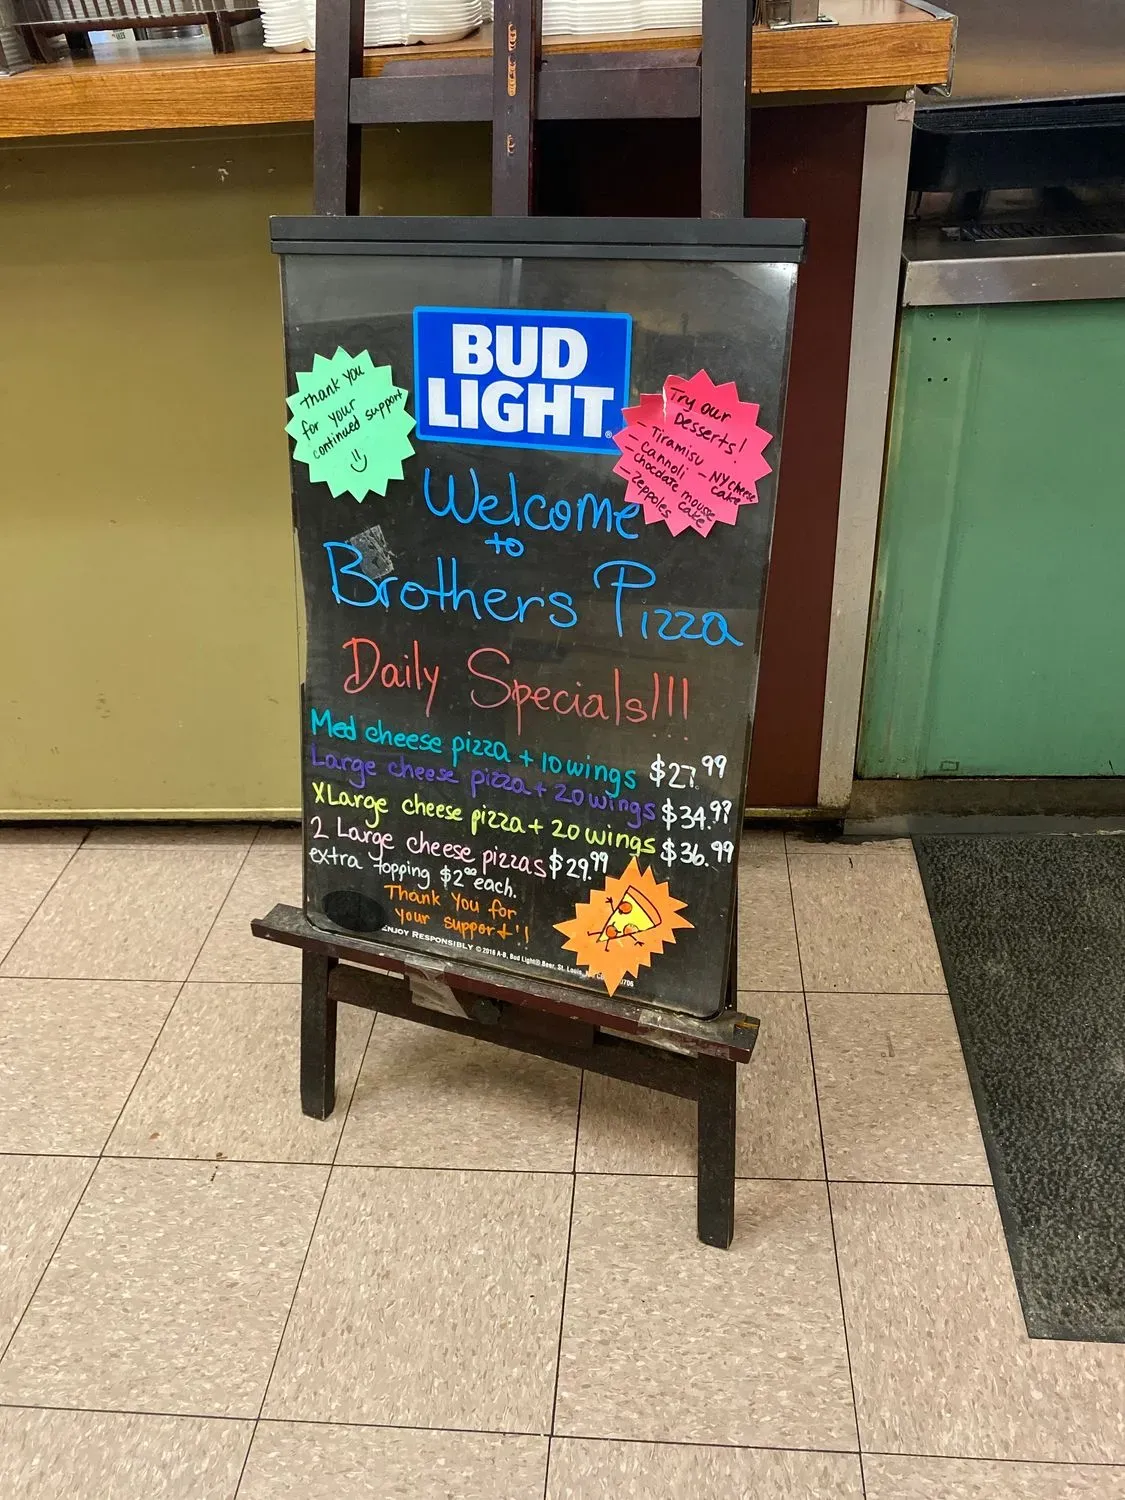 BUD
LIGHT
Thank you
for your
continued support
Try our
Desserts!
- Tiramisu - NY cheese
cake
- Cannoli
- Chocolate mousse
cake
- Zeppoles
Welcome
to
Brothers Pizza
Daily Specials!!!
Med cheese pizza + 10 wings $27.99
Large cheese pizza + 20 wings $34.99
XLarge cheese pizza + 20 wings $36.99
2 Large cheese pizzas $29.99
extra topping $2.00 each.
Thank You for
your support!!
ENJOY RESPONSIBLY © 2016 A-B, Bud Light® Beer, St. Louis,